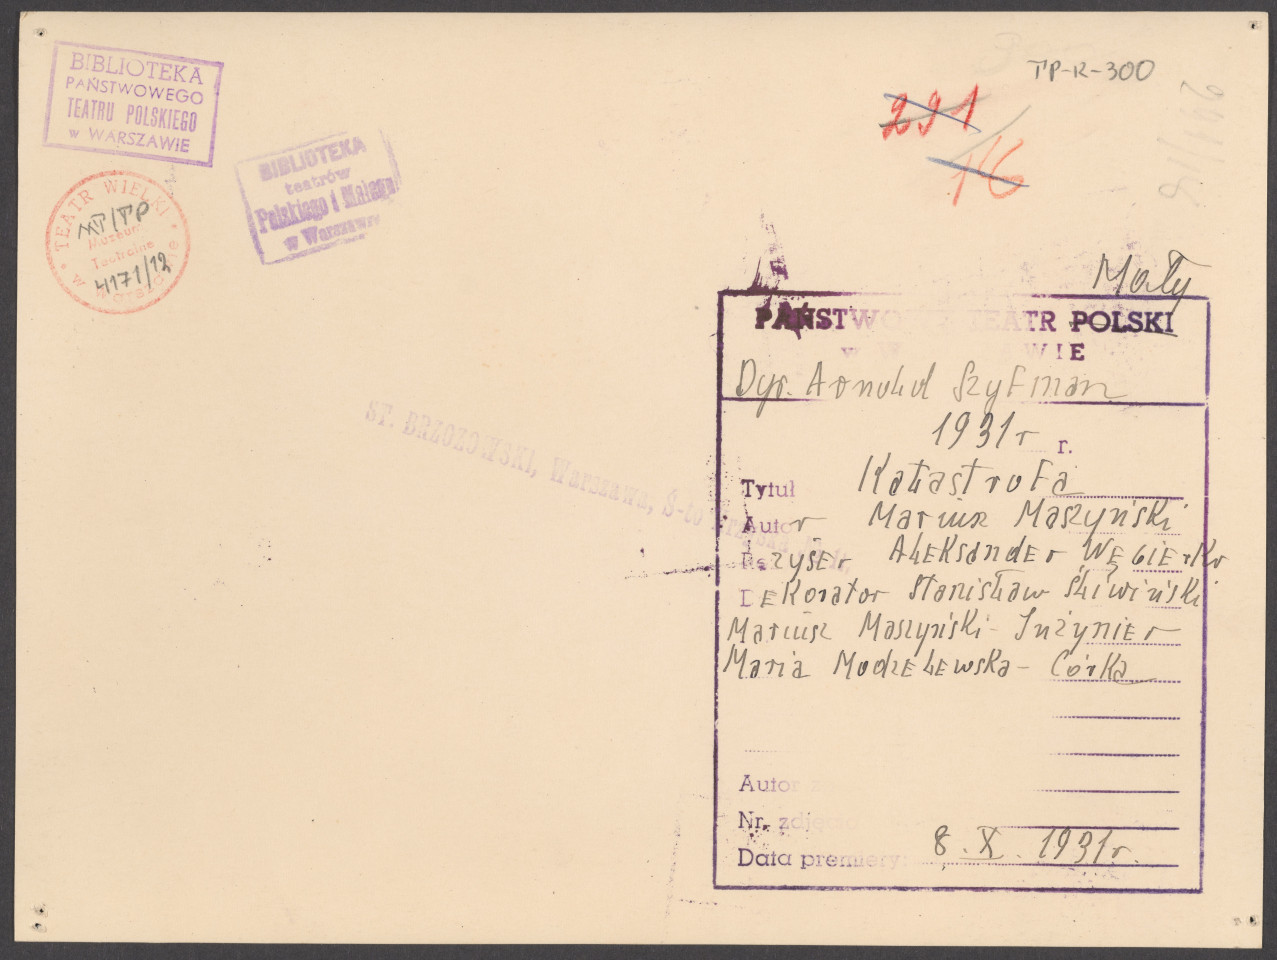 BIBLIOTEKA
PAŃSTWOWEGO
TEATRU POLSKIEGO
w WARSZAWIE
TEATR WIELKI
MT/TP
Muzeum
Teatralne
4171/12
w Warszawie
BIBLIOTEKA
teatrów
Polskiego i Małego
w Warszawie
TP-R-300
291
16
291/18
Mały
PAŃSTWOWY TEATR POLSKI
w WARSZAWIE
Dyr. Arnold Szyfman
1931 r r.
Tytuł Katastrofa
Autor Mariusz Maszyński
Reżyser Aleksander Węgierko
Dekorator Stanisław Śliwiński
Mariusz Maszyński - Inżynier
Maria Modzelewska - Córka
Autor
Nr. zdjęcia
Data premiery: 8. X. 1931 r.
ST. BRZOZOWSKI, Warszawa, Ś-to